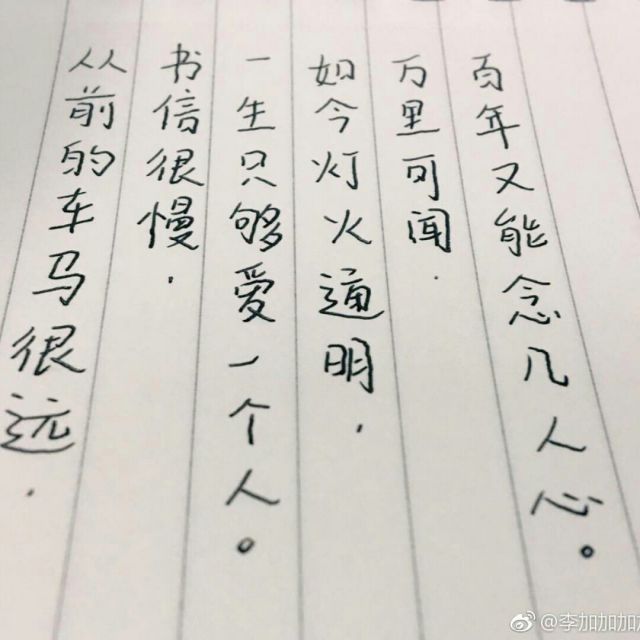 从前的车马很远.
书信很慢.
一生只够爱一个人。
如今灯火通明.
万里可闻.
百年又能念几人心。
@李加加加